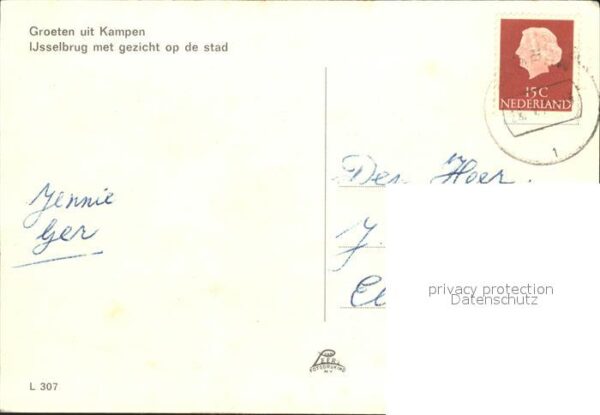 Groeten uit Kampen
IJsselbrug met gezicht op de stad
15C
NEDERLAND
Den Heer.
J.
Jennie
Ger
privacy protection
Datenschutz
L 307